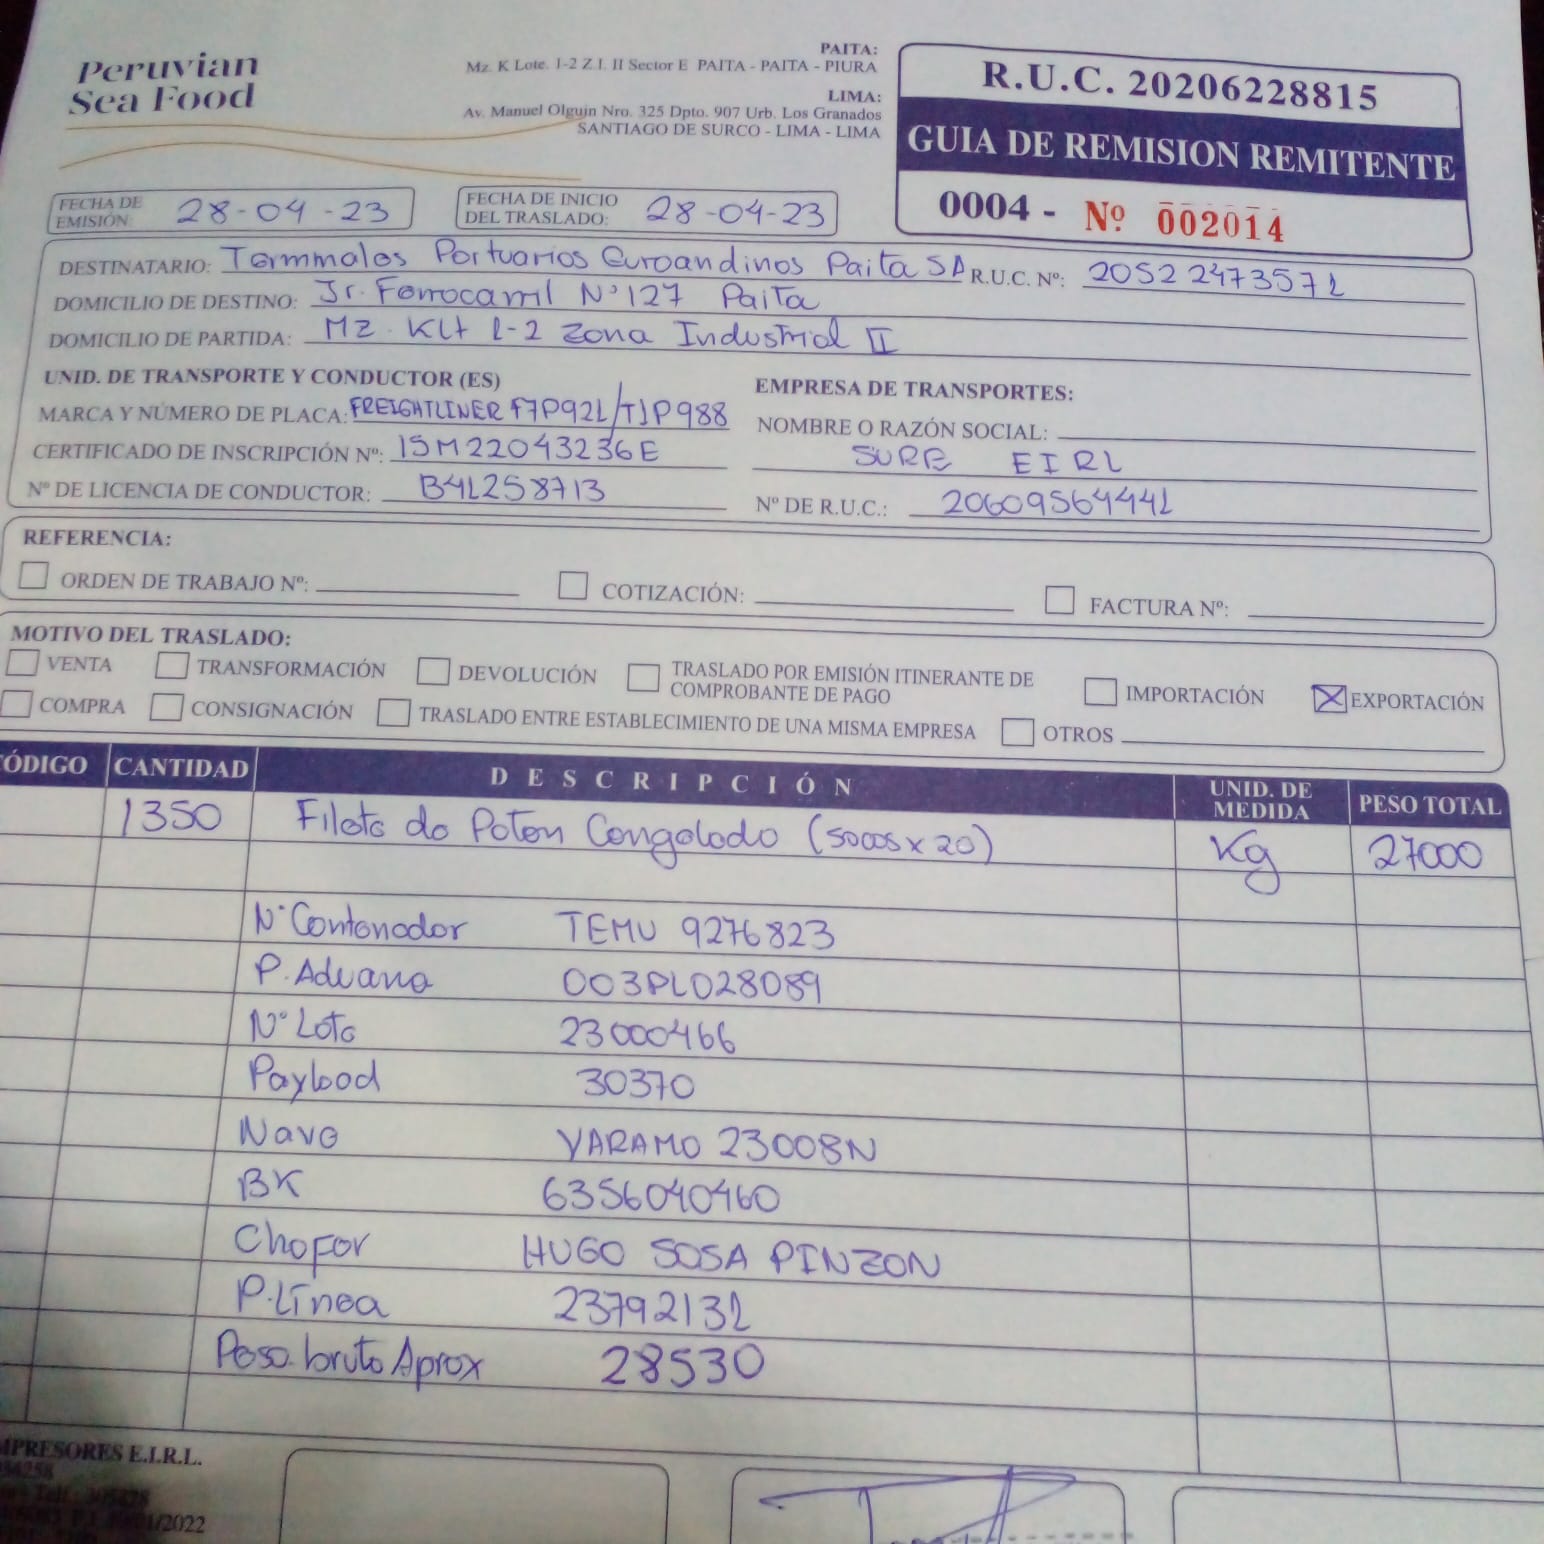 Peruvian
Sea Food
PAITA:
Mz. K Lote. 1-2 Z.I. II Sector E PAITA - PAITA - PIURA
LIMA:
Av. Manuel Olguin Nro. 325 Dpto. 907 Urb. Los Granados
SANTIAGO DE SURCO - LIMA - LIMA
R.U.C. 20206228815
GUIA DE REMISION REMITENTE
0004 - Nº 002014
FECHA DE EMISIÓN: 28-04-23
FECHA DE INICIO DEL TRASLADO: 28-04-23
DESTINATARIO: Terminales Portuarios Euroandinos Paita SA R.U.C. Nº: 20522473571
DOMICILIO DE DESTINO: Jr. Ferrocarril Nº 127 Paita
DOMICILIO DE PARTIDA: Mz. K Lt 1-2 Zona Industrial II
UNID. DE TRANSPORTE Y CONDUCTOR (ES)
MARCA Y NÚMERO DE PLACA: FREIGHTLINER F7P921/T1P988
CERTIFICADO DE INSCRIPCIÓN Nº: 15M22043236E
Nº DE LICENCIA DE CONDUCTOR: B41258713
EMPRESA DE TRANSPORTES:
NOMBRE O RAZÓN SOCIAL:
SURE EIRL
Nº DE R.U.C.: 20609564441
REFERENCIA:
ORDEN DE TRABAJO Nº: COTIZACIÓN: FACTURA Nº:
MOTIVO DEL TRASLADO:
VENTA TRANSFORMACIÓN DEVOLUCIÓN TRASLADO POR EMISIÓN ITINERANTE DE COMPROBANTE DE PAGO IMPORTACIÓN EXPORTACIÓN
COMPRA CONSIGNACIÓN TRASLADO ENTRE ESTABLECIMIENTO DE UNA MISMA EMPRESA OTROS
CÓDIGO CANTIDAD DESCRIPCIÓN UNID. DE MEDIDA PESO TOTAL
1350 Filete de Poton Congelado (sacos x 20) Kg 27000
Nº Contenedor TEMU 9276823
P. Aduana 003PL028089
Nº Lote 23000466
Payload 30370
Nave VARAMO 23008N
BK 6356040460
Chofer HUGO SOSA PINZON
P. Línea 23792131
Peso bruto Aprox 28530
MPRESORES E.I.R.L.
/2022